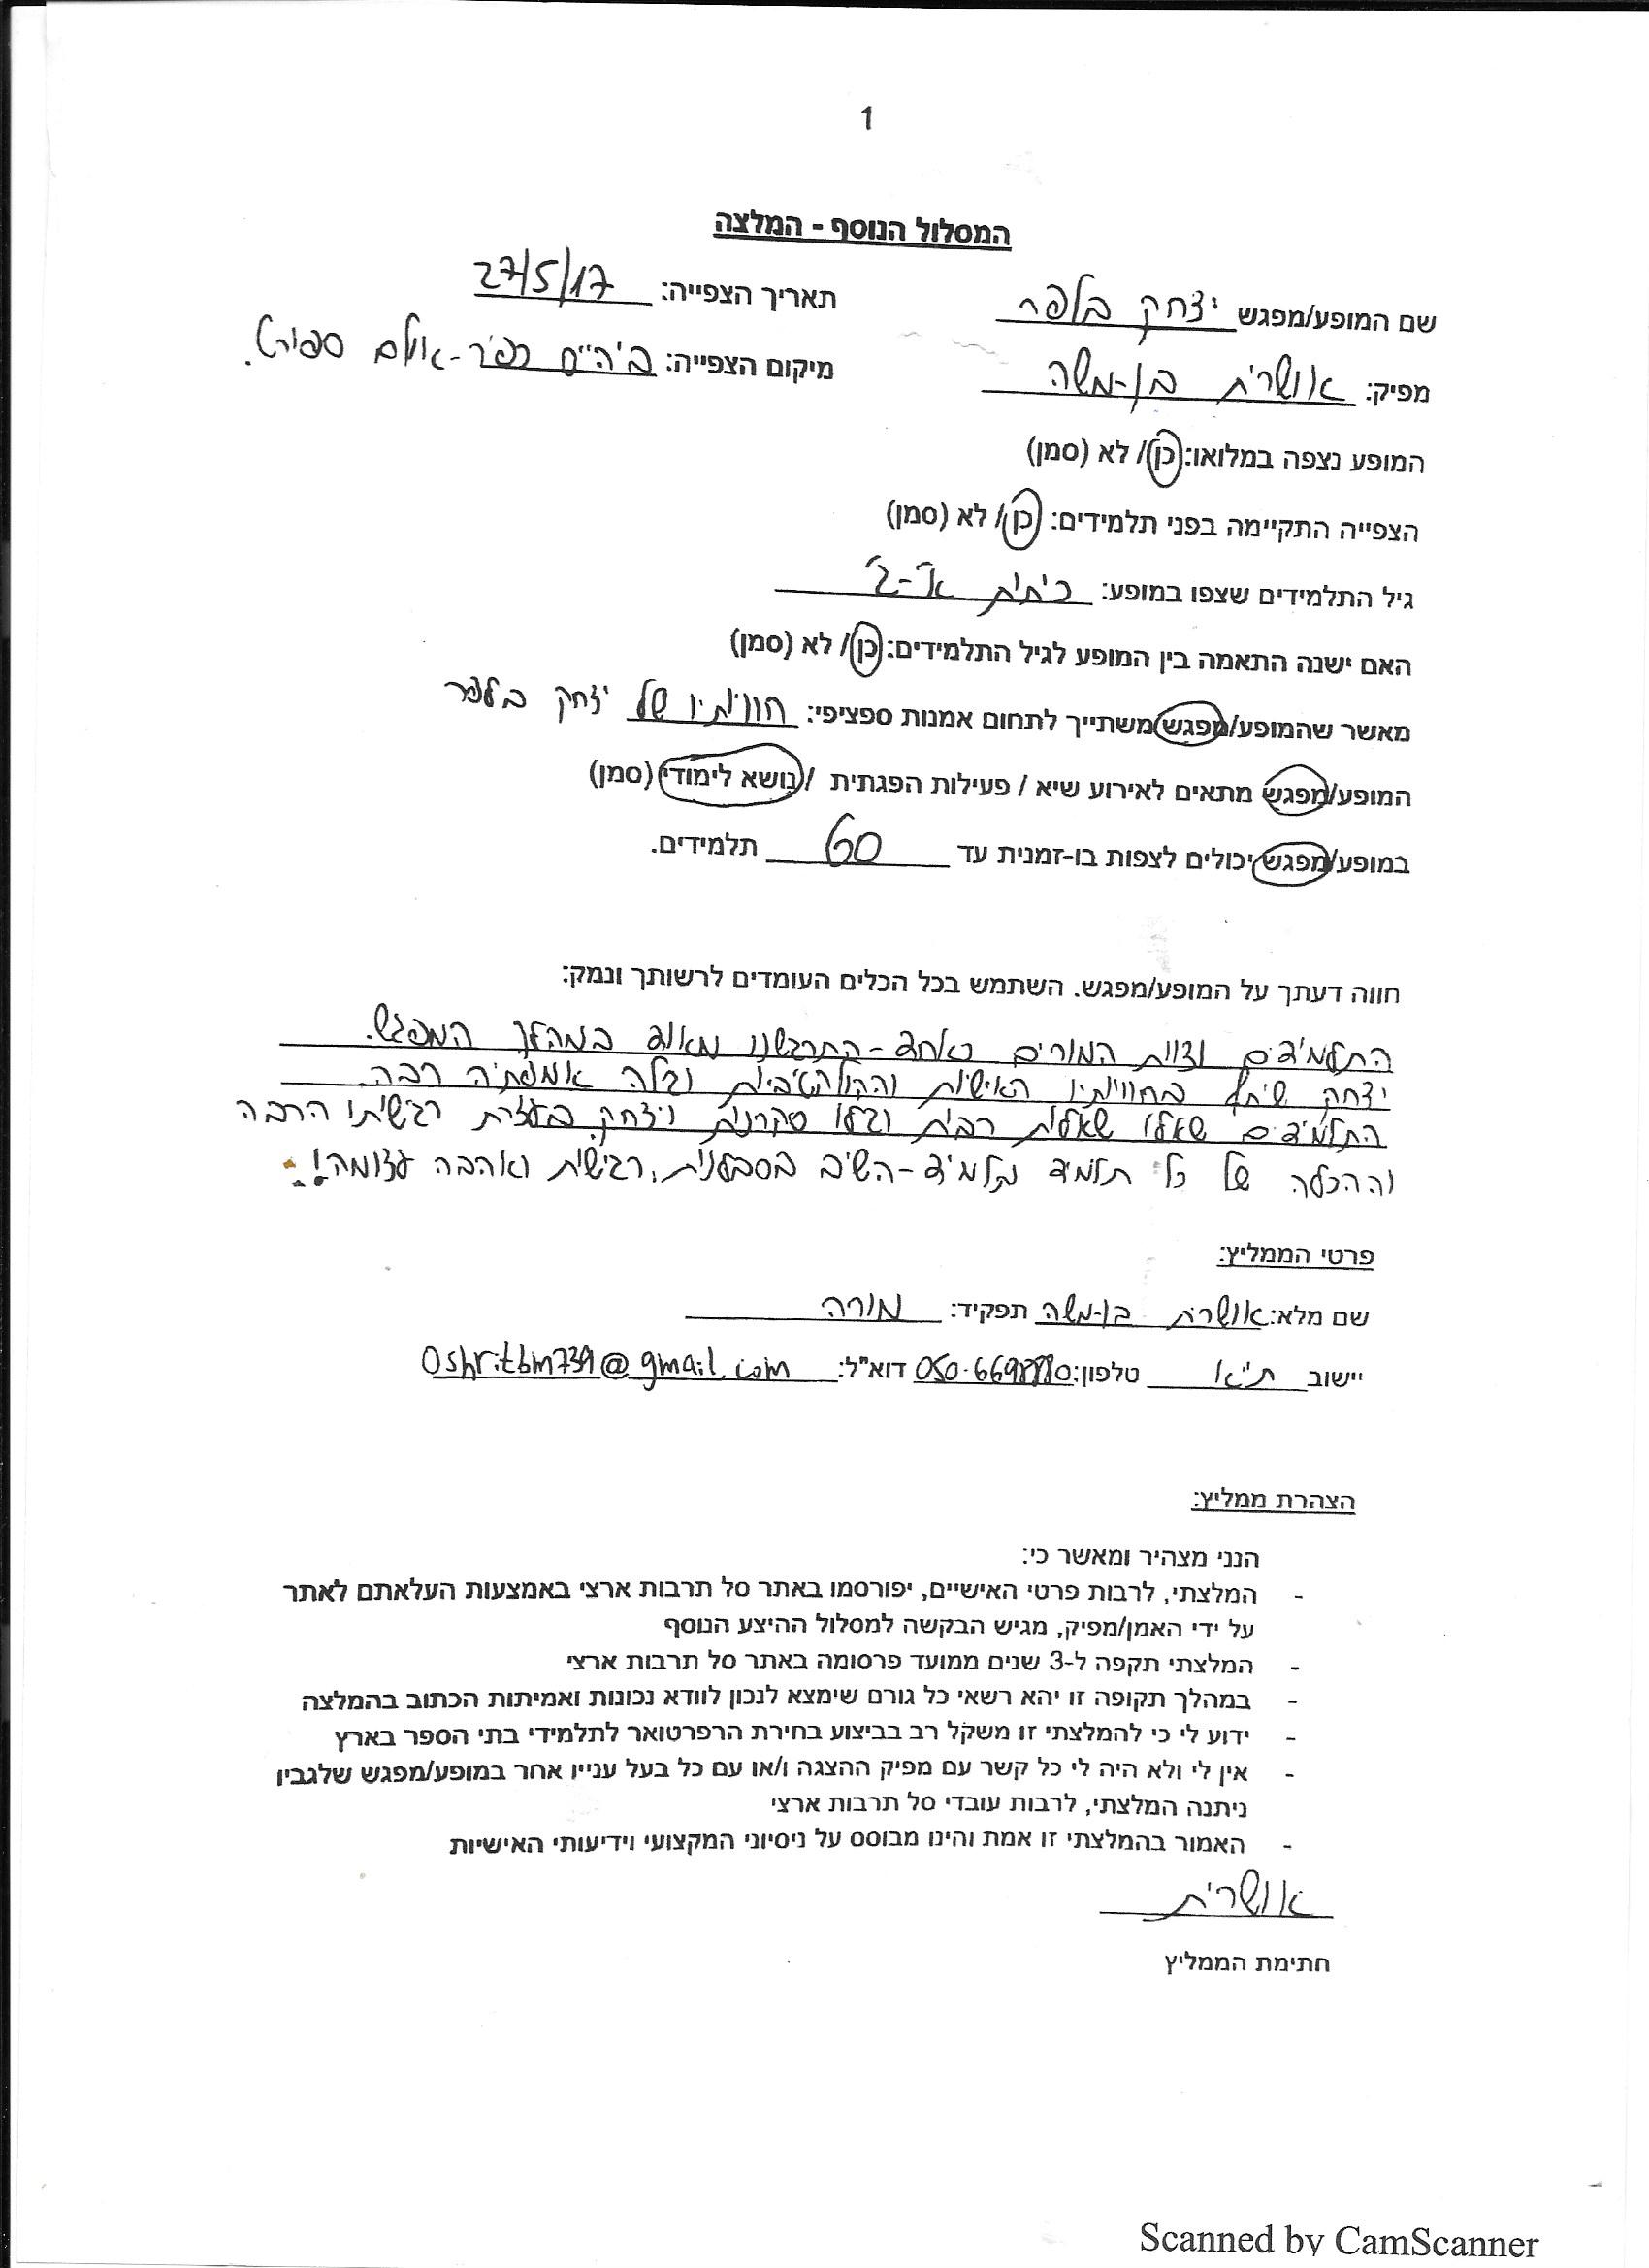 1
המסלול הנוסף - המלצה
שם המופע/מפגש יצחק בלפר תאריך הצפייה: 27/5/17
מפיק: אושרית בן-משה מיקום הצפייה: אולם ספורט.
המופע נצפה במלואו: כן/ לא (סמן)
הצפייה התקיימה בפני תלמידים: כן/ לא (סמן)
גיל התלמידים שצפו במופע: כיתות א'-ב'
האם ישנה התאמה בין המופע לגיל התלמידים: כן/ לא (סמן)
מאשר שהמופע/מפגש משתייך לתחום אמנות ספציפי: חוויותיו של יצחק בלפר
המופע/מפגש מתאים לאירוע שיא / פעילות הפגתית / נושא לימודי (סמן)
במופע/מפגש יכולים לצפות בו-זמנית עד 60 תלמידים.
חווה דעתך על המופע/מפגש. השתמש בכל הכלים העומדים לרשותך ונמק:
התלמידים וצוות המורים כאחד - התרגשנו מאוד במהלך המפגש.
יצחק שיתף בחוויותיו האישיות והקולקטיביות וגילה אמפתיה רבה.
התלמידים שאלו שאלות רבות וגילו סקרנות ויצחק בעזרת רגישותו הרבה
וההכלה של כל תלמיד ותלמיד - השיב בסבלנות, רגישות ואהבה עצומה!
פרטי הממליץ:
שם מלא: אושרית בן-משה תפקיד: מורה
יישוב ת"א טלפון: דוא"ל: Oshritbm739@gmail.com
הצהרת ממליץ:
הנני מצהיר ומאשר כי:
- המלצתי, לרבות פרטי האישיים, יפורסמו באתר סל תרבות ארצי באמצעות העלאתם לאתר
על ידי האמן/מפיק, מגיש הבקשה למסלול ההיצע הנוסף
- המלצתי תקפה ל-3 שנים ממועד פרסומה באתר סל תרבות ארצי
- במהלך תקופה זו יהא רשאי כל גורם שימצא לנכון לוודא נכונות ואמיתות הכתוב בהמלצה
- ידוע לי כי להמלצתי זו משקל רב בביצוע בחירת הרפרטואר לתלמידי בתי הספר בארץ
- אין לי ולא היה לי כל קשר עם מפיק ההצגה ו/או עם כל בעל עניין אחר במופע/מפגש שלגביו
ניתנה המלצתי, לרבות עובדי סל תרבות ארצי
- האמור בהמלצתי זו אמת והינו מבוסס על ניסיוני המקצועי וידיעותי האישיות
אושרית
חתימת הממליץ
Scanned by CamScanner